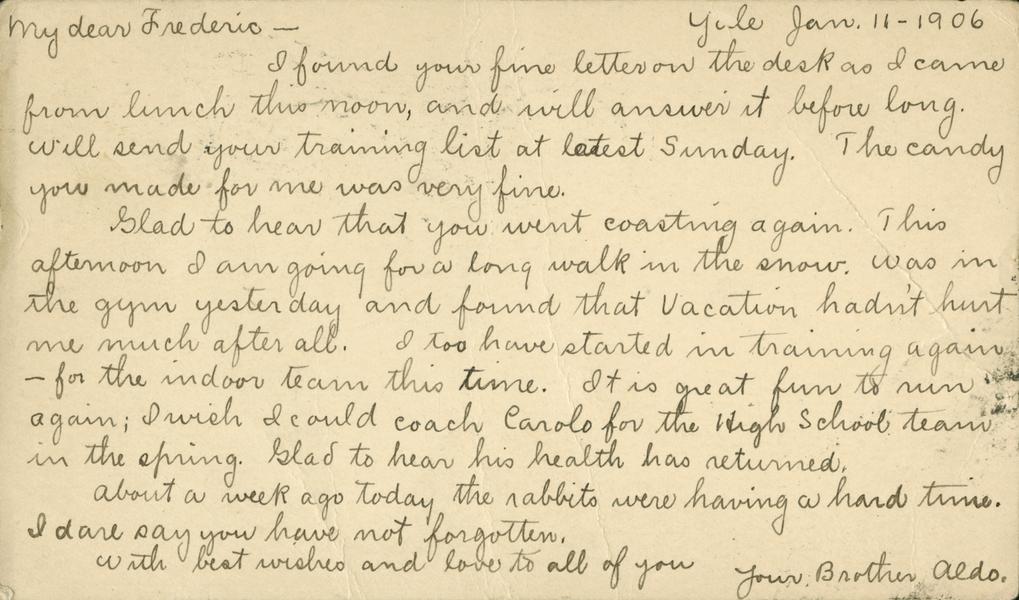 My dear Frederic — Yale Jan. 11-1906
I found your fine letter on the desk as I came
from lunch this noon, and will answer it before long.
Will send your training list at latest Sunday. The candy
you made for me was very fine.
Glad to hear that you went coasting again. This
afternoon I am going for a long walk in the snow. Was in
the gym yesterday and found that Vacation hadn't hurt
me much after all. I too have started in training again
– for the indoor team this time. It is great fun to run
again; I wish I could coach Carolo for the High School team
in the spring. Glad to hear his health has returned.
About a week ago today the rabbits were having a hard time.
I dare say you have not forgotten.
With best wishes and love to all of you
Your Brother Aldo.